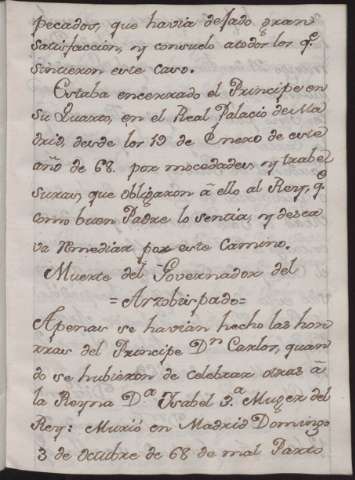 pecador, que havia dejado gran
satisfaccion, y consuelo atodos los q.e
sintieron este caso.
Estaba encerrado el Principe en
su Quarto, en el Real Palacio de Ma
drid, desde los 19 de Enero de este
año de 68. por mocedades, y trabe
suras, que obligaron â ello al Rey, q.e
como buen Padre lo sentia, y desea
va remediar por este camino.
Muerte del Governador del
=Arzobispado=
Apenas se havian hecho las hon
rras del Principe D.n Carlos, quan
do se hubieron de celebrar otras â
la Reyna D.a Isabel 3.a Muger del
Rey: Murió en Madrid Domingo
3 de octubre de 68 de mal Parto